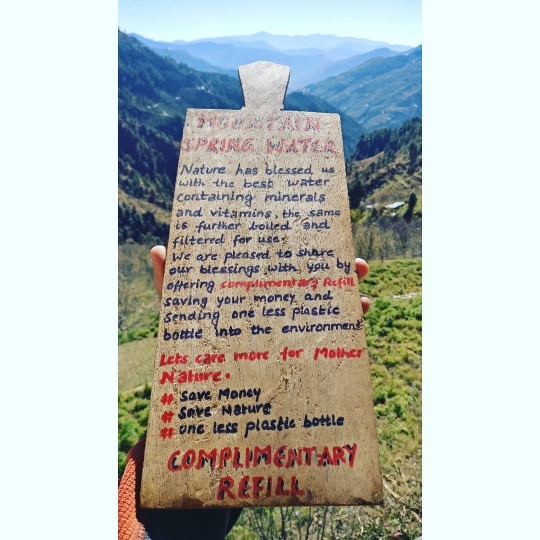 MOUNTAIN
SPRING WATER
Nature has blessed us
with the best water
containing minerals
and vitamins, the same
is further boiled and
filtered for use.
We are pleased to share
our blessings with you by
offering complimentary Refill
saving your money and
sending one less plastic
bottle into the environment
Lets care more for Mother
Nature.
# Save Money
# Save Nature
# one less plastic bottle
COMPLIMENTARY
REFILL